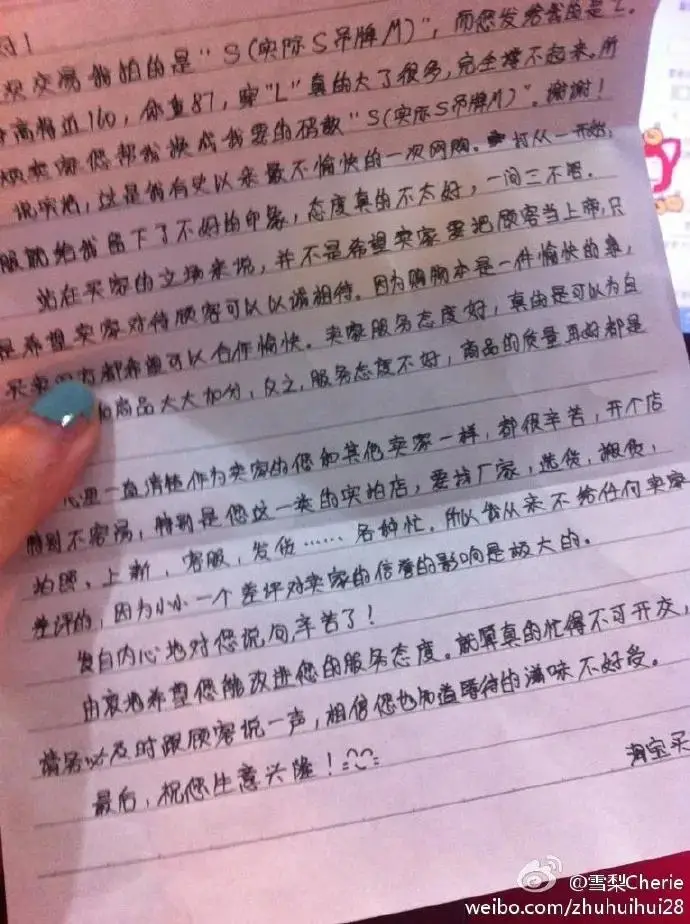 次交易我拍的是“S(实际S吊牌M)”，而您发给我的是L.
高将近160，体重87，穿“L”真的大了很多，完全撑不起来。所
烦卖家您帮我换成我要的码数“S(实际S吊牌M)”。谢谢！
说实话，这是我有史以来最不愉快的一次网购。打从一开始，
服就给我留下了不好的印象，态度真的不太好，一问三不答。
站在买家的立场来说，并不是希望卖家要把顾客当上帝，只
是希望卖家对待顾客可以以诚相待。因为购物本是一件愉快的事，
买卖双方都希望可以合作愉快。卖家服务态度好，真的是可以为自
商品大大加分，反之，服务态度不好，商品的质量再好都是
心里一直清楚作为卖家的您和其他卖家一样，都很辛苦，开个店
特别不容易，特别是您这一类的实拍店，要找厂家，选货，搬货，
拍照、上新，客服，发货……各种忙。所以我从来不给任何卖家
差评的，因为小小一个差评对卖家的信誉的影响是极大的。
发自内心地对您说句辛苦了！
由衷地希望您能改进您的服务态度。就算真的忙得不可开交，
请务必及时跟顾客说一声，相信您也知道等待的滋味不好受。
最后，祝您生意兴隆！
淘宝买
@雪梨Cherie
weibo.com/zhuhuihui28